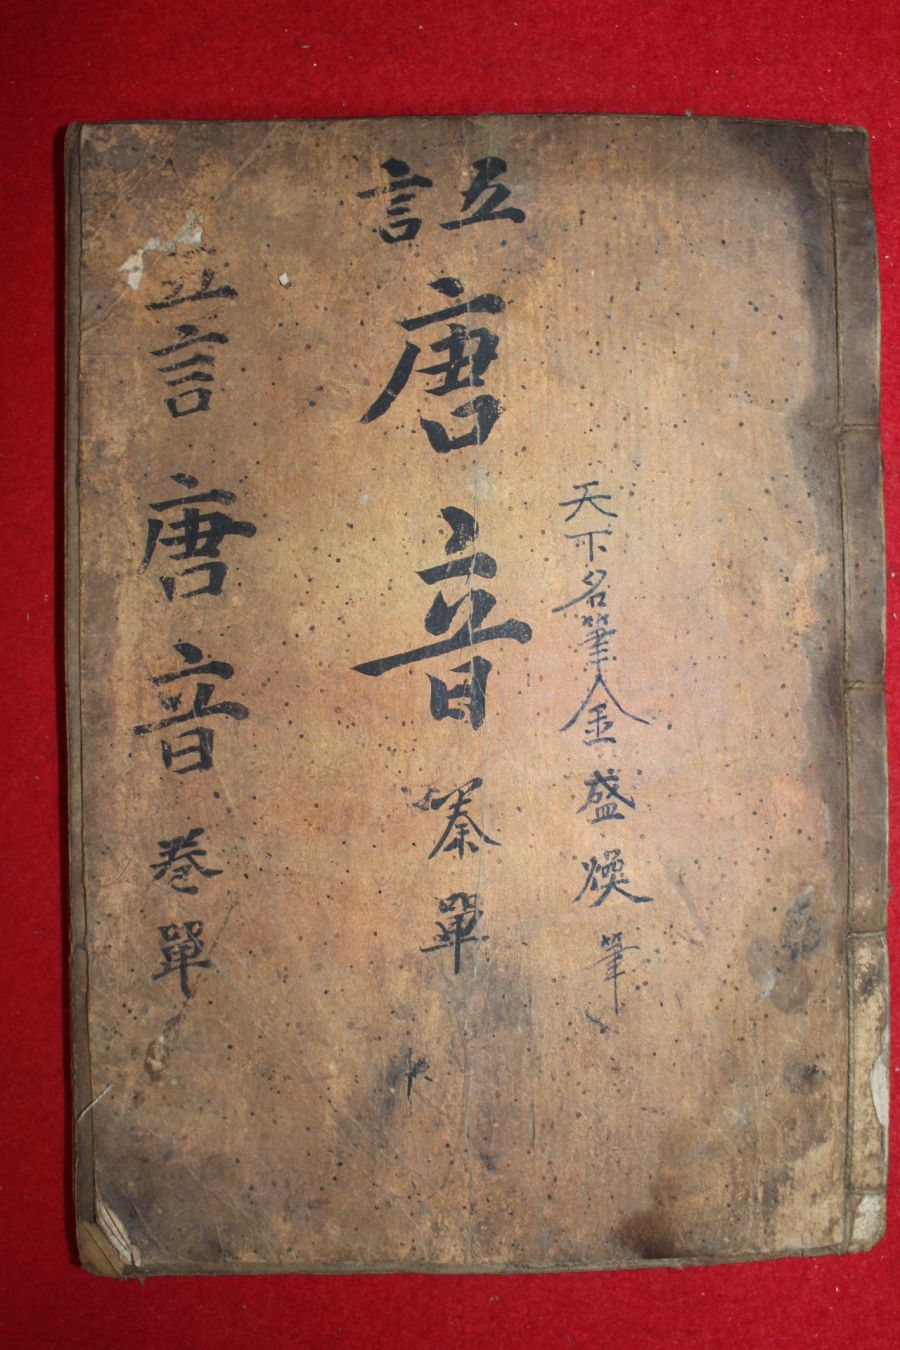 天下名筆金盛煥筆
五言唐音秦單
五言唐音卷單